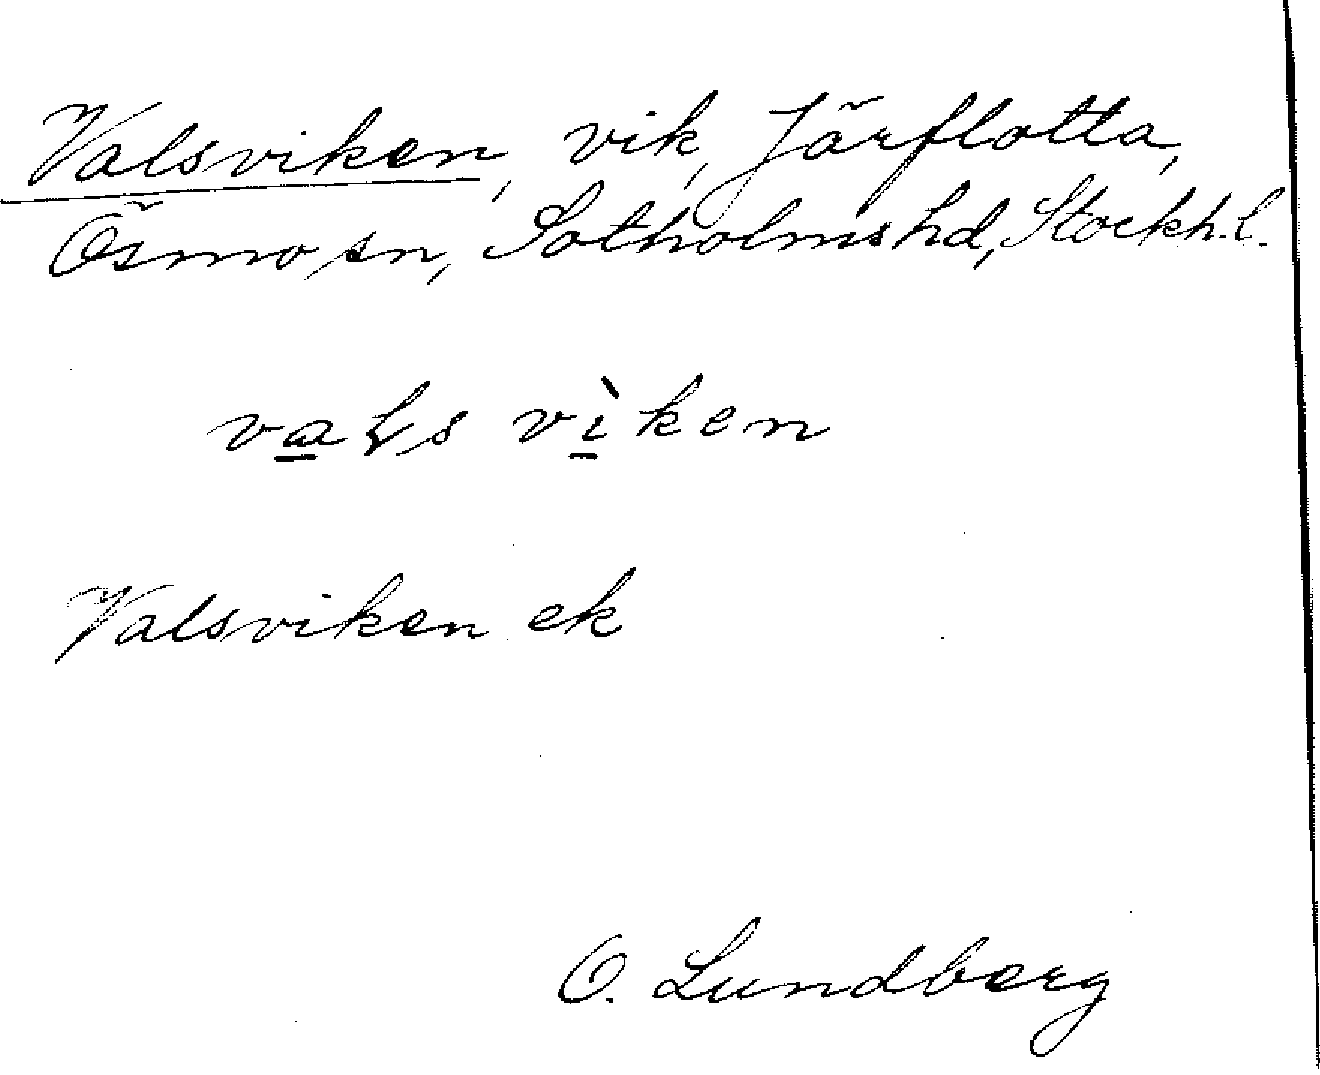 Valsviken, vik, Järflotta,
Ösmo sn, Sotholms hd, Stockh. l.
valsvìken
Valsviken ek
O. Lundberg